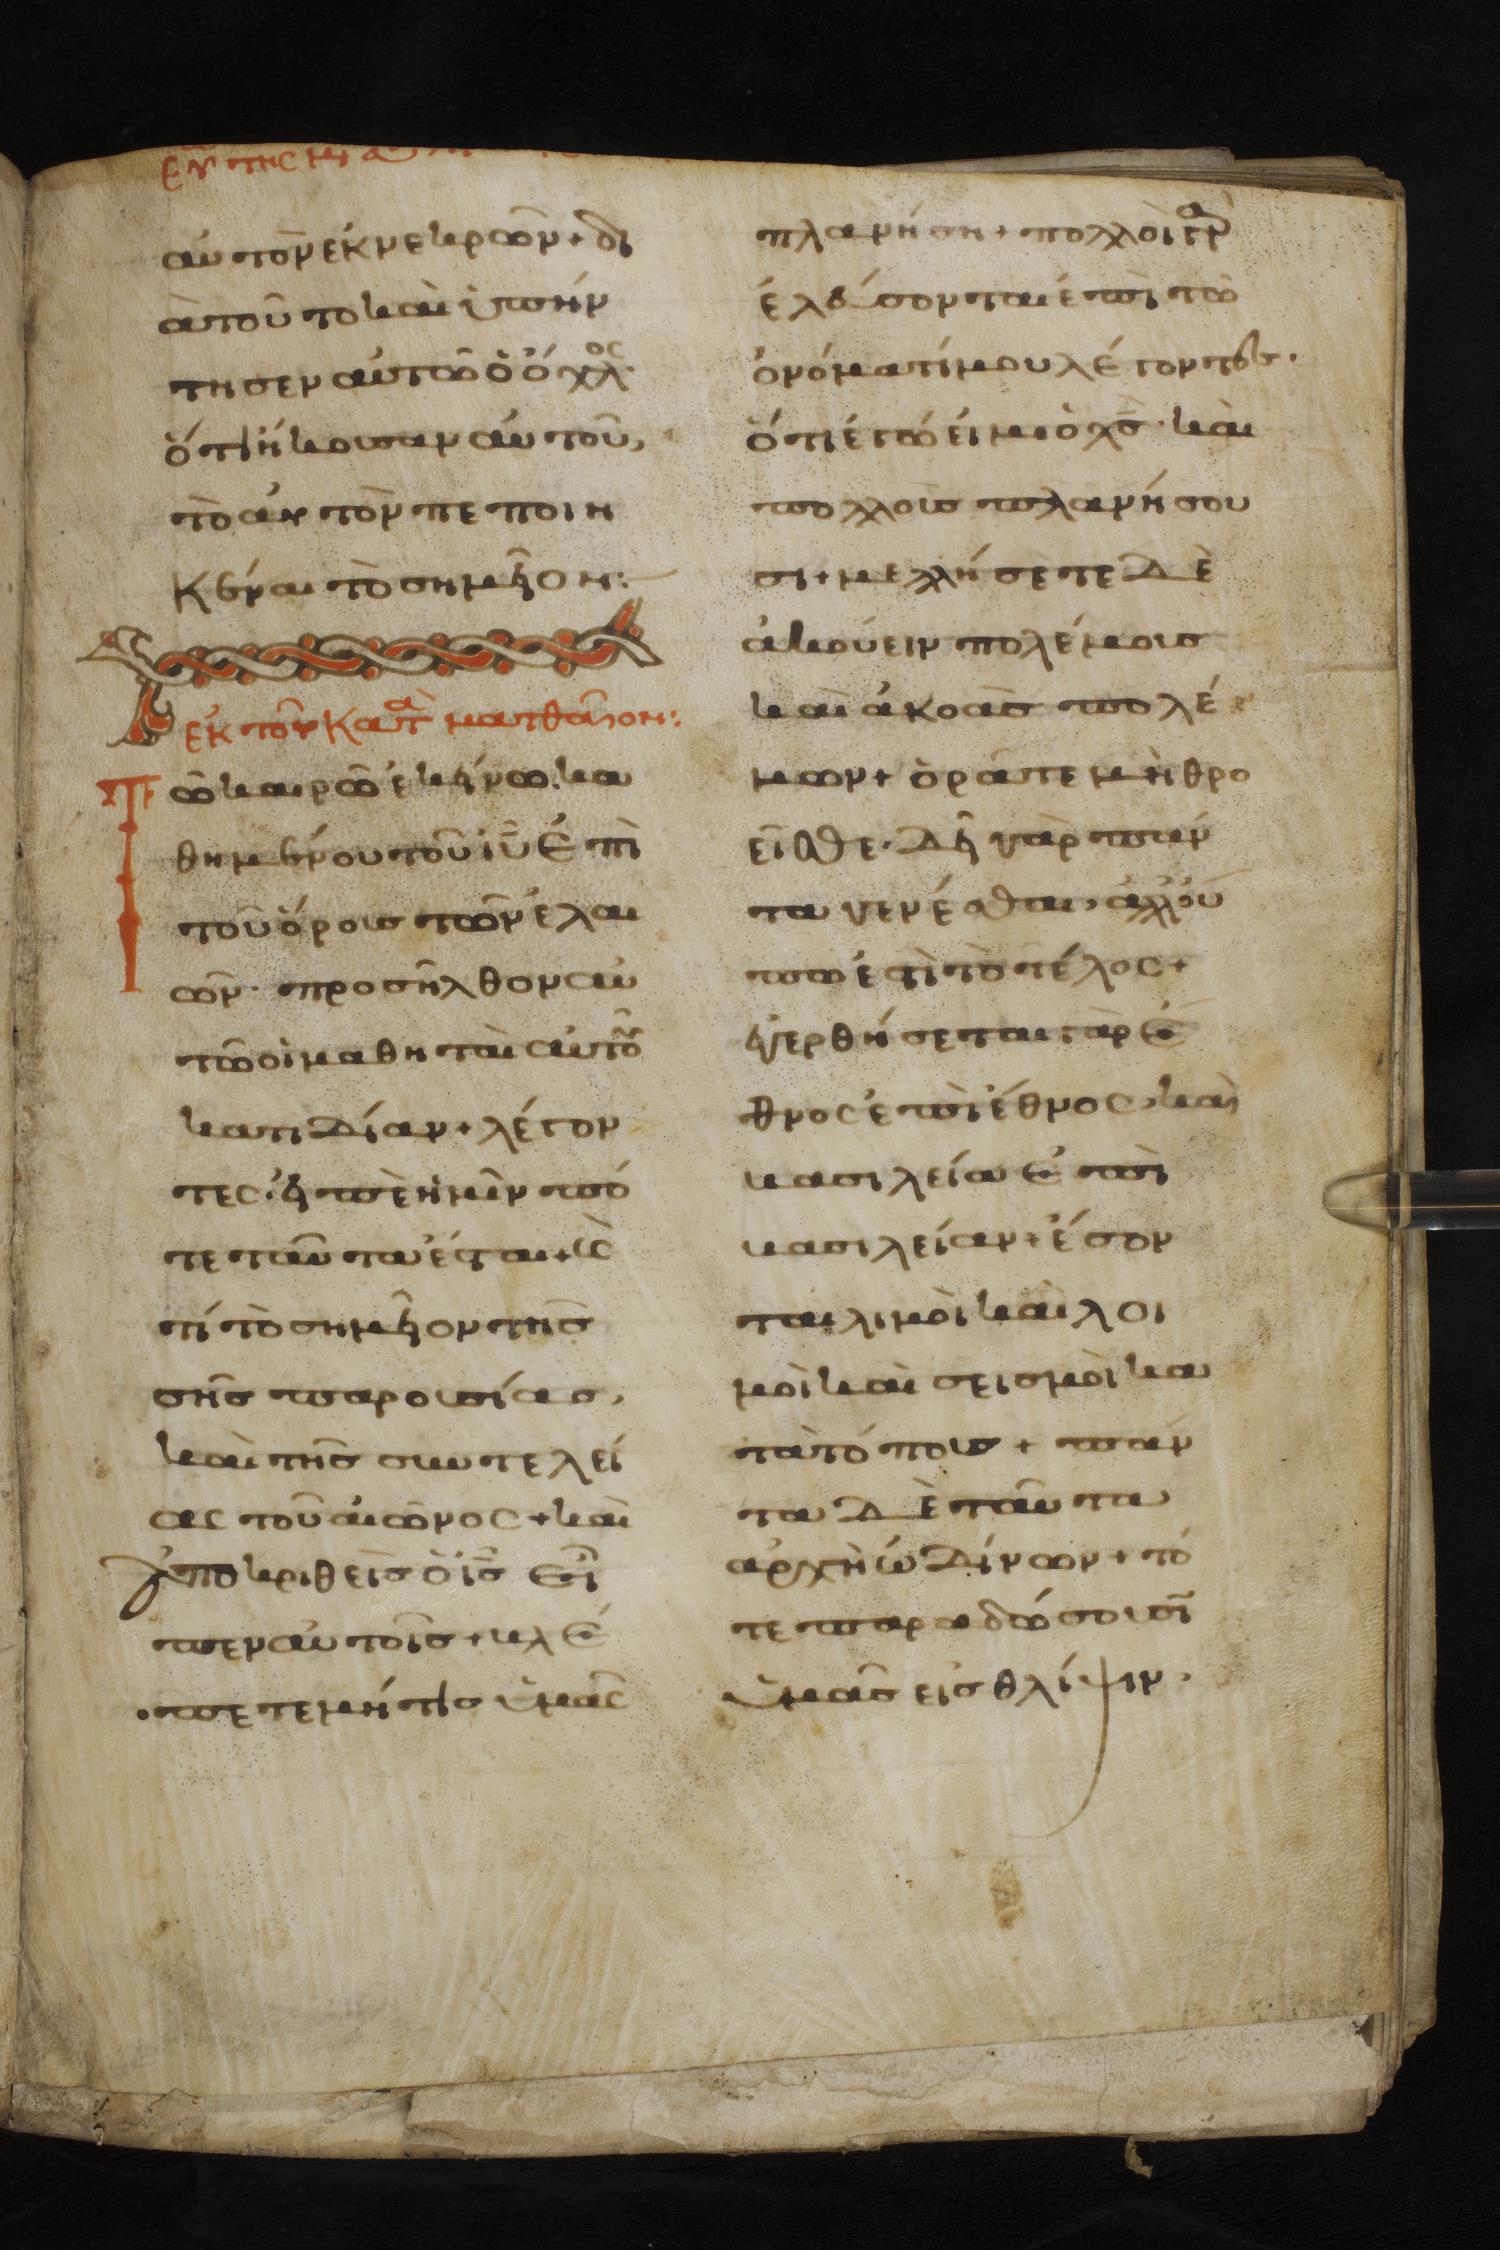 αὐτὸν ἐκ νεκρῶν + δι
ὰ τοῦτο καὶ ὑπήν
τησεν αὐτῶ ὁ ὄχλος
ὅτι ἤκουσαν αὐτοῦ,
τὸ αὐτὸν πεποιη
κέναι τὸ σημεῖον:
ἐκ τοῦ κατὰ ματθαῖον:
Τῶ καιρῶ ἐκείνω. κα
θημένου τοῦ ιυ ἐπὶ
τοῦ ὄρους τῶν ἐλαι
ῶν· προσῆλθον αὐ
τῶ οἱ μαθηταὶ αὐτοῦ
κατιδίαν + λέγον
τες· εἰπὲ ἡμῖν πό
τε ταῦτα ἔσται + καὶ
τί τὸ σημεῖον τῆς
σῆς παρουσίας,
καὶ τῆς συντελεί
ας τοῦ αἰῶνος + καὶ
ἀποκριθεὶς ὁ ις εἶ
πεν αὐτοῖς + βλέ
πετε μή τις ὑμᾶς
πλανήση + πολλοὶ γὰρ
ἐλεύσονται ἐπὶ τῶ
ὀνόματί μου λέγοντες·
ὅτι ἐγώ εἰμι ὁ χς· καὶ
πολλοὺς πλανήσου
σι + μελλήσετε δὲ
ἀκούειν πολέμους
καὶ ἀκοὰς πολέ
μων + ὁρᾶτε μὴ θρο
εῖσθε· δεῖ γὰρ πάν
τα γενέσθαι, ἀλλ' οὔ
πω ἐστὶ τὸ τέλος +
ἐγερθήσεται γὰρ ἔ
θνος ἐπὶ ἔθνος, καὶ
βασιλεία ἐπὶ
βασιλείαν + ἔσον
ται λιμοὶ καὶ λοι
μοὶ καὶ σεισμοὶ κα
τὰ τόπους + πάν
τα δὲ ταῦτα
ἀρχὴ ὠδίνων + τό
τε παραδώσουσῖ
ὑμᾶς εἰς θλίψιν·